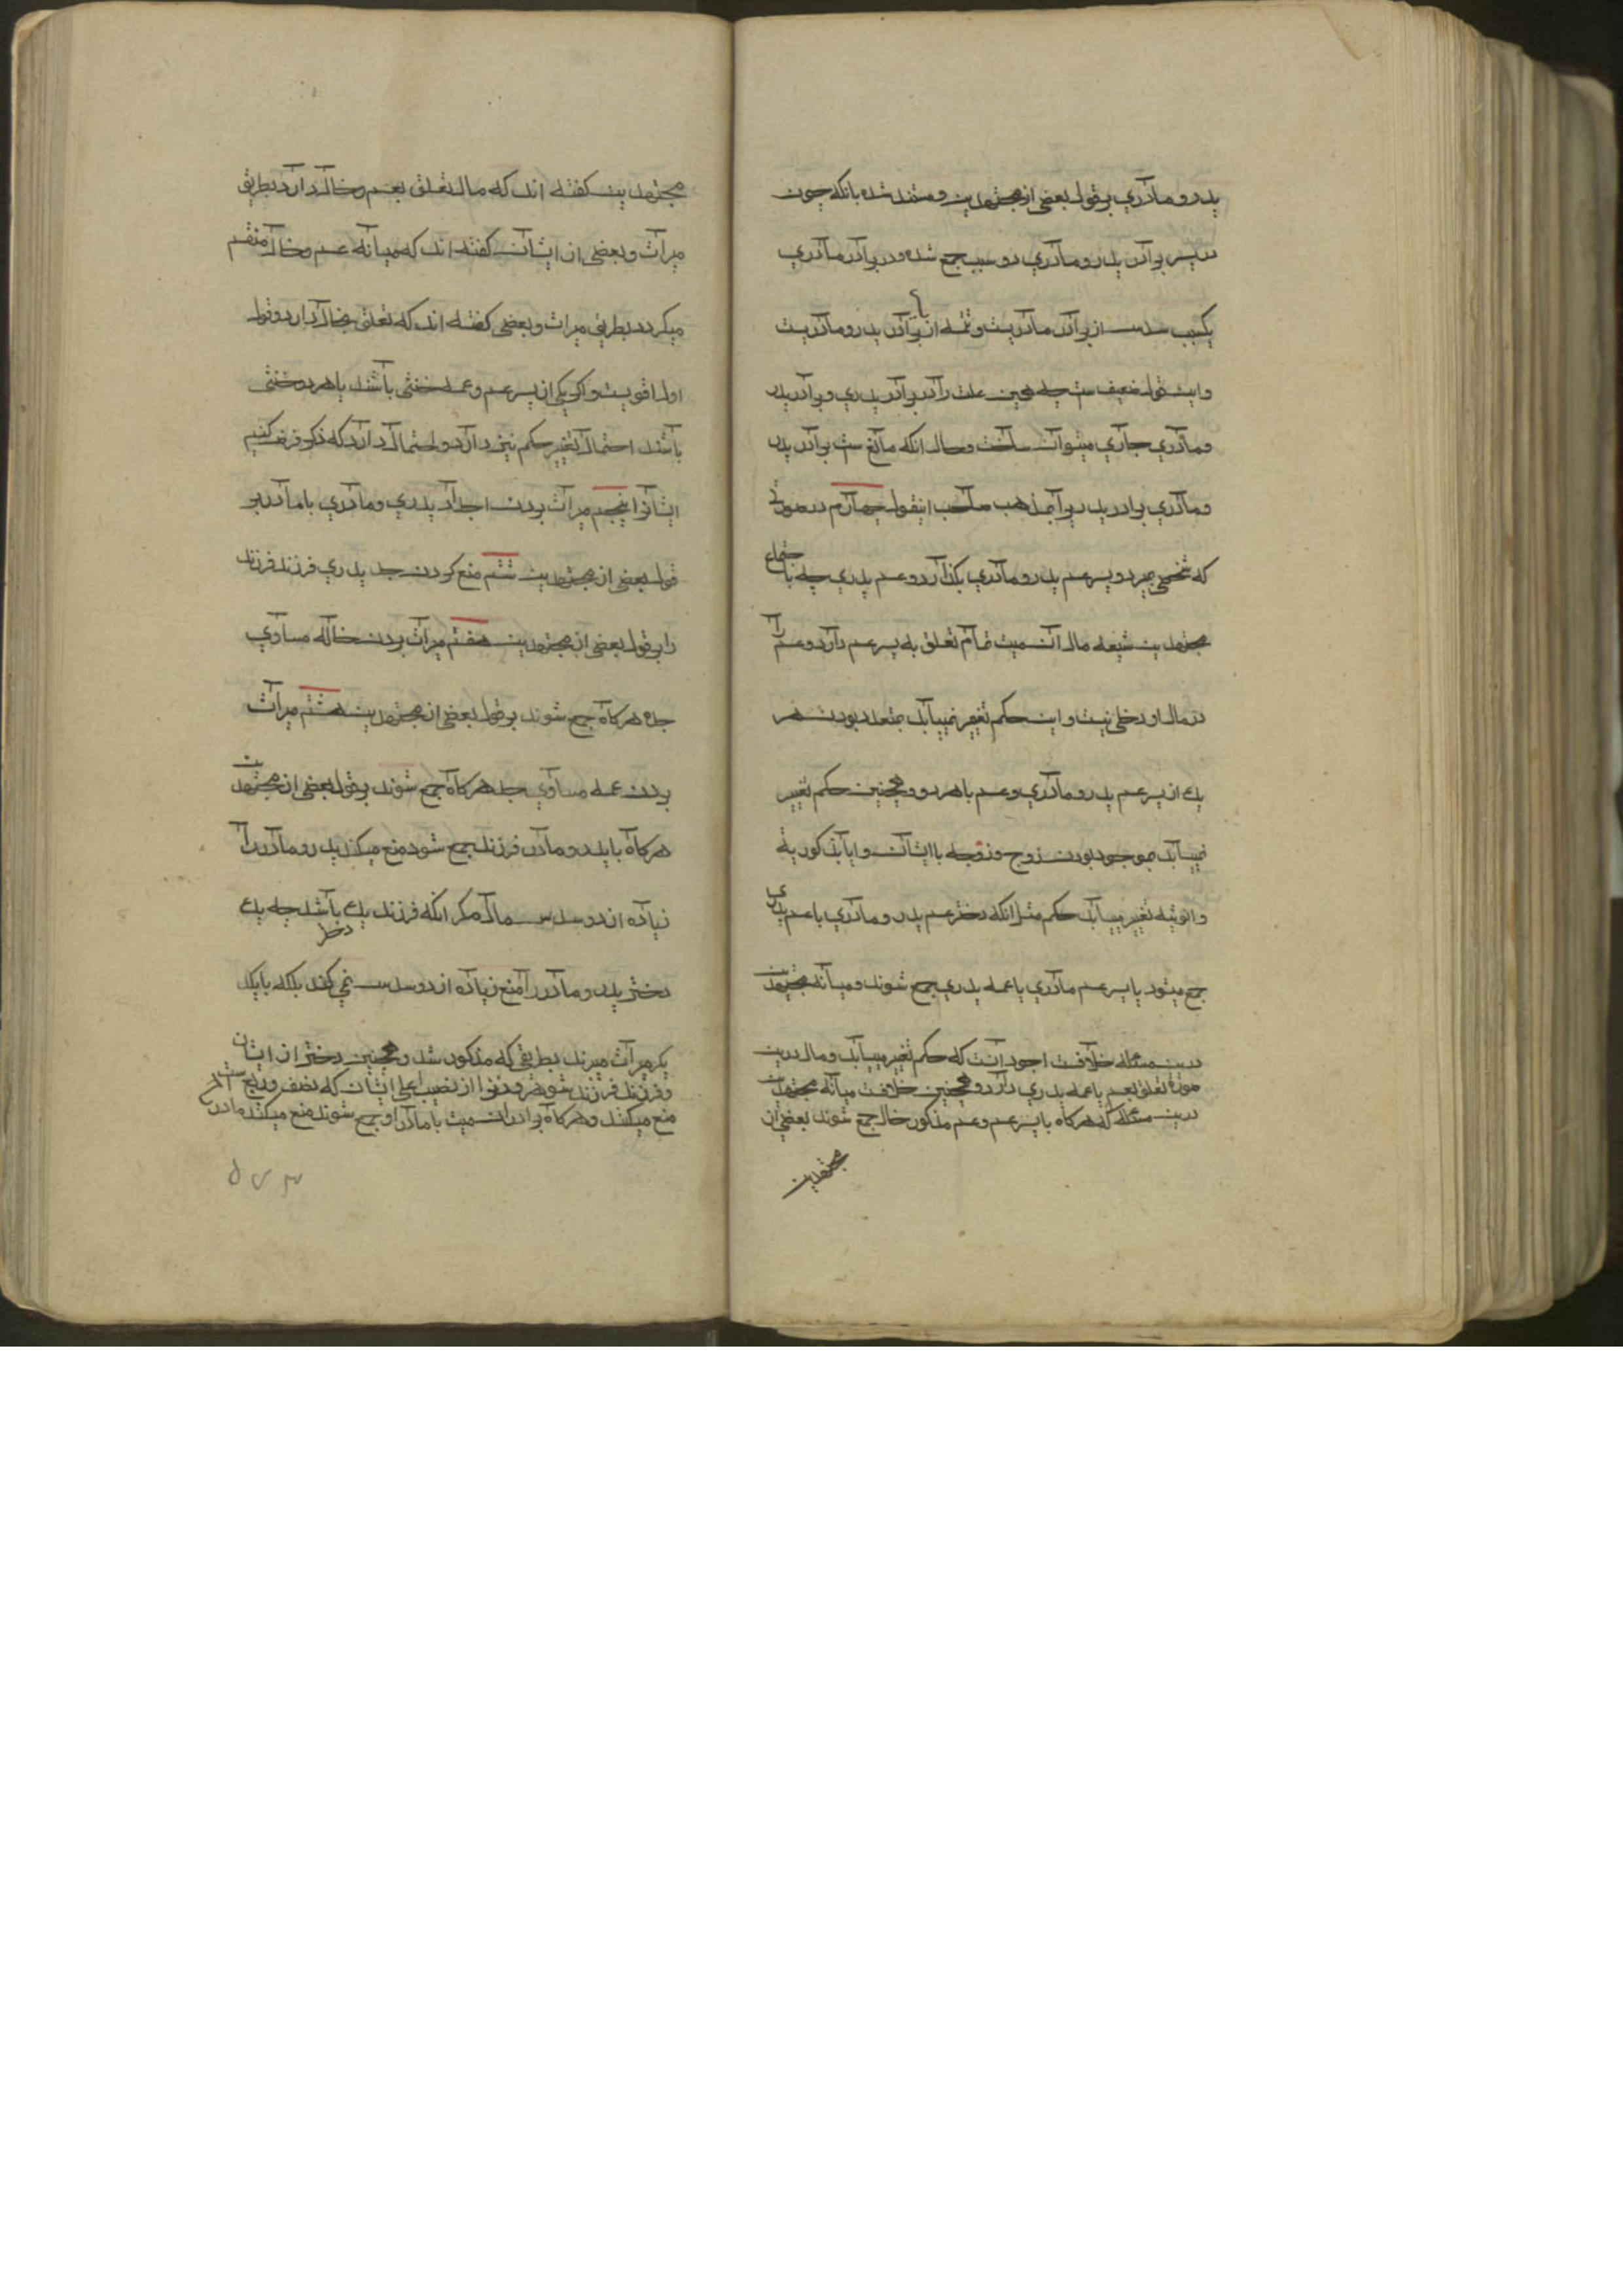 پدر و مادری بر قول بعضی از مجتهدین و مستند شده بانکه چون
در پسر برادر پدر و مادری دو سبب جمع شده و در برادر مادری
یکسبب سدس از برادر مادریست و تتمه از برادر پدر و مادریست
و این قول ضعیف ست چه همین علت را در برادر پدری و برادر پدر
و مادری جاری میتوان ساخت و حال انکه مانع ست برادر پدر
و مادری برادر پدری را بمذهب صاحب اینقول چهارم در صورتی
که شخصی بمیرد و پسر عم پدر و مادری بگذارد و عم پدری چه باجماع
مجتهدین شیعه مال آن میت تمام تعلق به پسر عم دارد و عم را
در مال او دخلی نیست و این حکم تغیر نمییابد بمتعدد بودن هر
یک از پسر عم پدر و مادری و عم یا هر دو و همچنین حکم تغییر
نمییابد بموجود بودن زوج و زوجه با ایشان و ایا بذکوریة
و انوثیه تغییر مییابد حکم مثل انکه دختر عم پدر و مادری با عم پدری
جمع میشود یا پسر عم مادری با عمه پدری جمع شوند و میانه مجتهدین
درین مسئله خلافست اجود آنست که حکم تغییر مییابد و مال درین
صورة تعلق بعم یا عمه پدری دارد و همچنین خلافست میانه مجتهدین
درین مسئله که هرکاه با پسر عم و عم مذکور خال جمع شوند بعضی از
مجتهدین
مجتهدین کفته اند که مال تعلق بعم و خال دارد بطریق
میراث و بعضی از ایشان کفته اند که میانه عم و خال منقسم
میکردد بطریق میراث و بعضی کفته اند که تعلق بخال دارد و قول
اول اقویست و اکر یکی از پسر عم و عم خنثی باشند یا هر دو خنثی
باشند احتمال تغییر حکم نیز دارد و احتمال دارد که ذکر فرض کنیم
ایشانرا پنجم میراث بردن اجداد پدری و مادری با مادر بر
قول بعضی از مجتهدین ششم منع کردن جد پدری فرزند فرزند
را بر قول بعضی از مجتهدین هفتم میراث بردن خاله مساوی
جده هرکاه جمع شوند بر قول بعضی از مجتهدین هشتم میراث
بردن عمه مساوی جد هرکاه جمع شوند بر قول بعضی از مجتهدین
هرکاه با پدر و مادر فرزند جمع شود منع میکند پدر و مادر را
زیاده از دو سدس مال مکر انکه فرزند یک باشد چه یک
دختر
دختر پدر و مادر را منع زیاده از دو سدس نمی کند بلکه با یکد
یکر میراث میبرند بطریقی که مذکور شد و همچنین دختر از ایشان
و فرزند فرزند شوهر و زنرا از نصیب اعلی ایشان که نصف و ربع ست
منع میکنند و هرکاه برادران میت با مادر او جمع شوند منع میکنند مادر